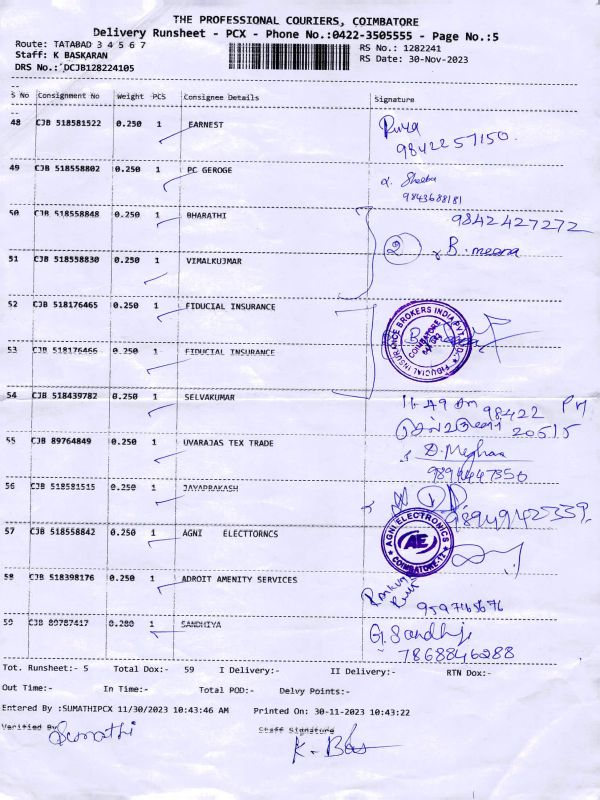 THE PROFESSIONAL COURIERS, COIMBATORE
Delivery Runsheet - PCX - Phone No.:0422-3505555 - Page No.:5
Route: TATABAD 3 4 5 6 7
RS No.: 1282241
Staff: K BASKARAN
RS Date: 30-Nov-2023
DRS No.: DCJB128224105
S No Consignment No Weight PCS Consignee Details Signature
48 CJB 518581522 0.250 1 EARNEST
9842257150
49 CJB 518558802 0.250 1 PC GEROGE
Sheeba
9843688181
50 CJB 518558848 0.250 1 BHARATHI
9842427272
2 B. meena
51 CJB 518558830 0.250 1 VIMALKUJMAR
52 CJB 518176465 0.250 1 FIDUCIAL INSURANCE
FIDUCIAL INSURANCE BROKERS INDIA PVT LTD.
COIMBATORE
53 CJB 518176466 0.250 1 FIDUCIAL INSURANCE
54 CJB 518439782 0.250 1 SELVAKUMAR
11-49 am 98422
20515
55 CJB 89764849 0.250 1 UVARAJAS TEX TRADE
D. Meghaa
56 CJB 518581515 0.250 1 JAYAPRAKASH
9894942339
57 CJB 518558842 0.250 1 AGNI ELECTTORNCS
AGNI ELECTRONICS
AE
COIMBATORE-12
58 CJB 518398176 0.250 1 ADROIT AMENITY SERVICES
59 CJB 89787417 0.280 1 SANDHIYA
G. Sandhiya
7868846288
Tot. Runsheet:- 5 Total Dox:- 59 I Delivery:- II Delivery:- RTN Dox:-
Out Time:- In Time:- Total POD:- Delvy Points:-
Entered By :SUMATHIPCX 11/30/2023 10:43:46 AM Printed On: 30-11-2023 10:43:22
Verified By Staff Signature
Sumathi K. Bas